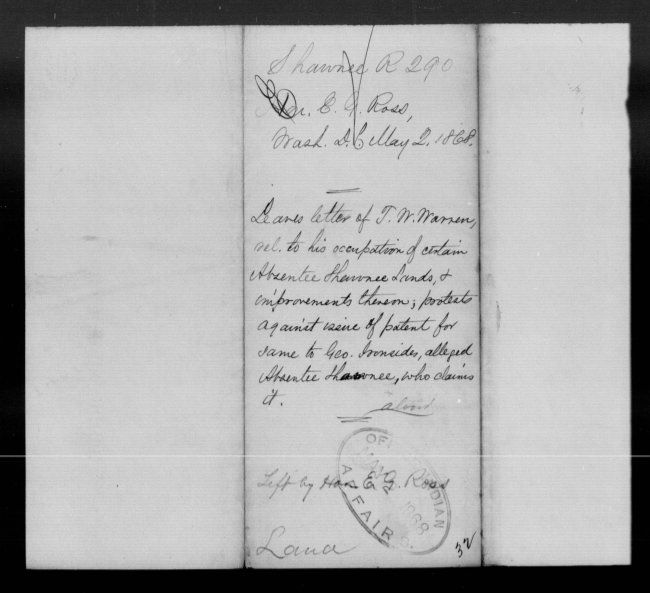 Shawnee R 290
Hon. E. G. Ross,
Wash. D.C. May 2. 1868.
Leaves letter of T. W. Warren,
rel. to his occupation of certain
Absentee Shawnee Lands, &
improvements thereon; protests
against issue of patent for
same to Geo. Ironsides, alleged
Absentee Shawnee, who claims
it.
Left by Hon E. G. Ross
OF INDIAN
MAY 2 1868
AFFAIRS.
Land
32